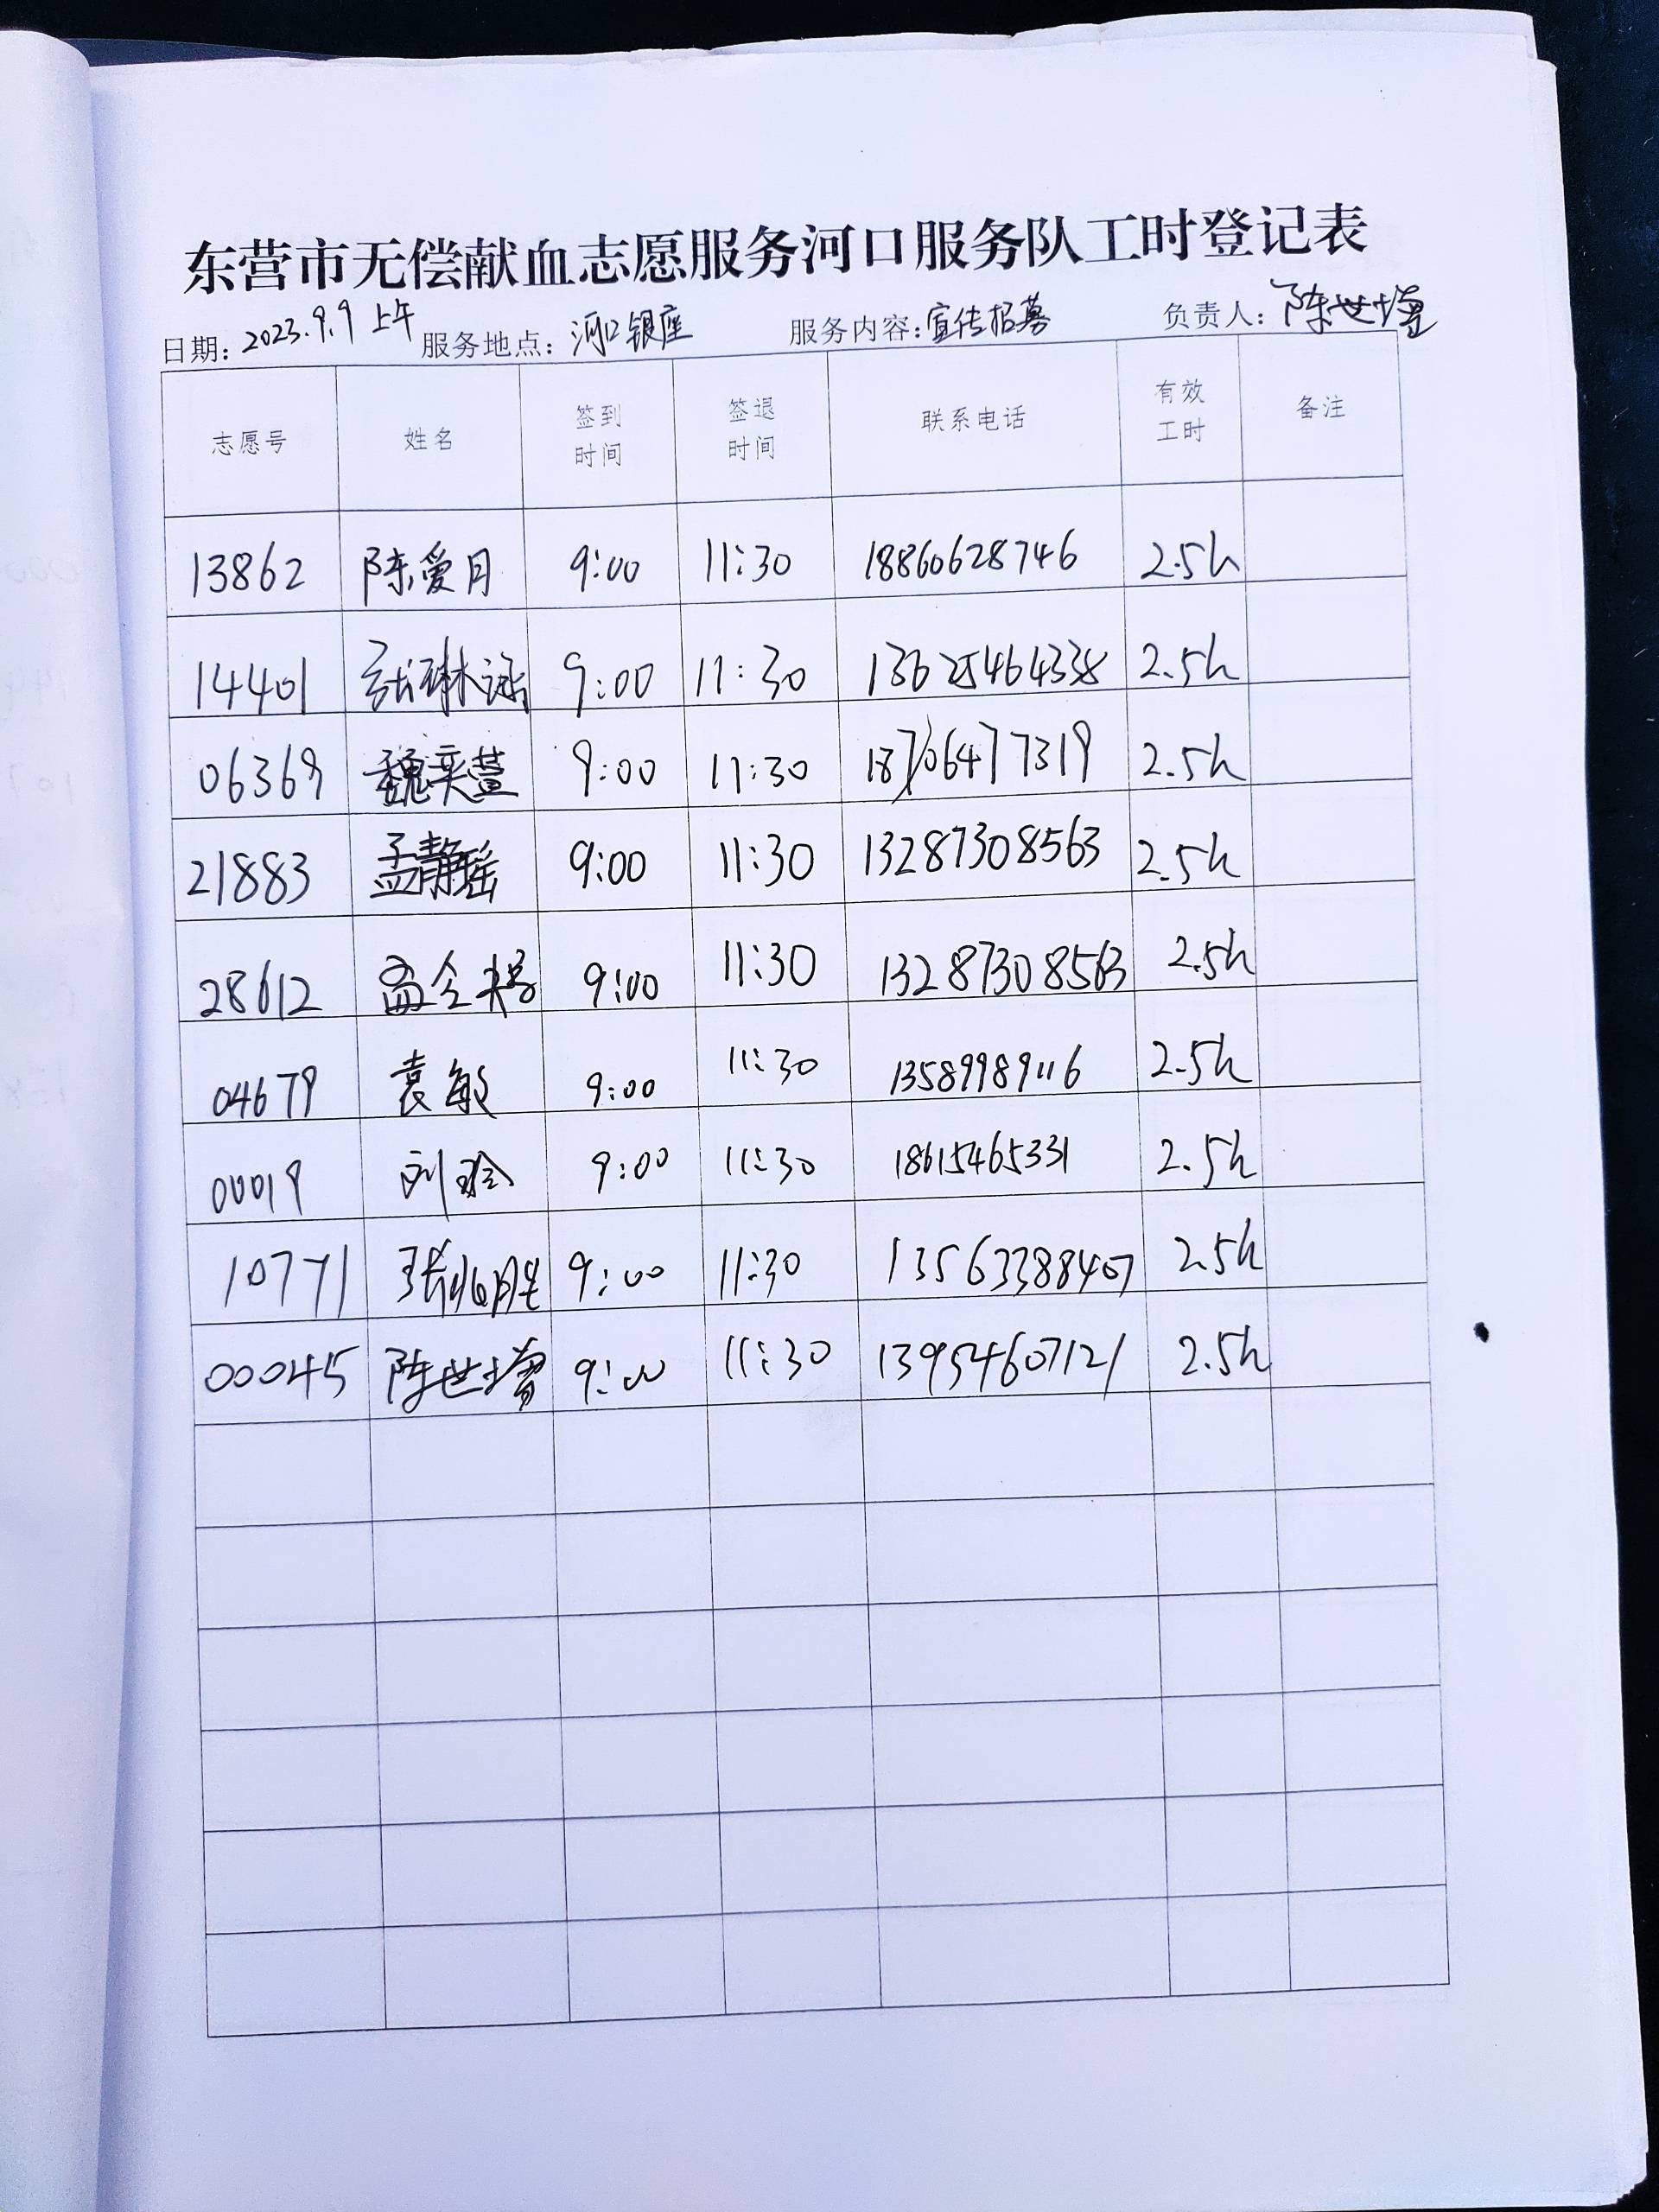 东营市无偿献血志愿服务河口服务队工时登记表
日期：2023.9.9 上午 服务地点：河口银座 服务内容：宣传招募 负责人：陈世增
志愿号 姓名 签到时间 签退时间 联系电话 有效工时 备注
13862 陈爱月 9:00 11:30 18860628746 2.5h
14401 9:00 11:30 13625464338 2.5h
06369 魏奕萱 9:00 11:30 18706477319 2.5h
21883 孟静瑶 9:00 11:30 13287308563 2.5h
28612 9:00 11:30 13287308563 2.5h
04679 袁敏 9:00 11:30 13589989116 2.5h
00019 刘玲 9:00 11:30 18615465331 2.5h
10771 张兆胜 9:00 11:30 13563388407 2.5h
00045 陈世增 9:00 11:30 13954607121 2.5h